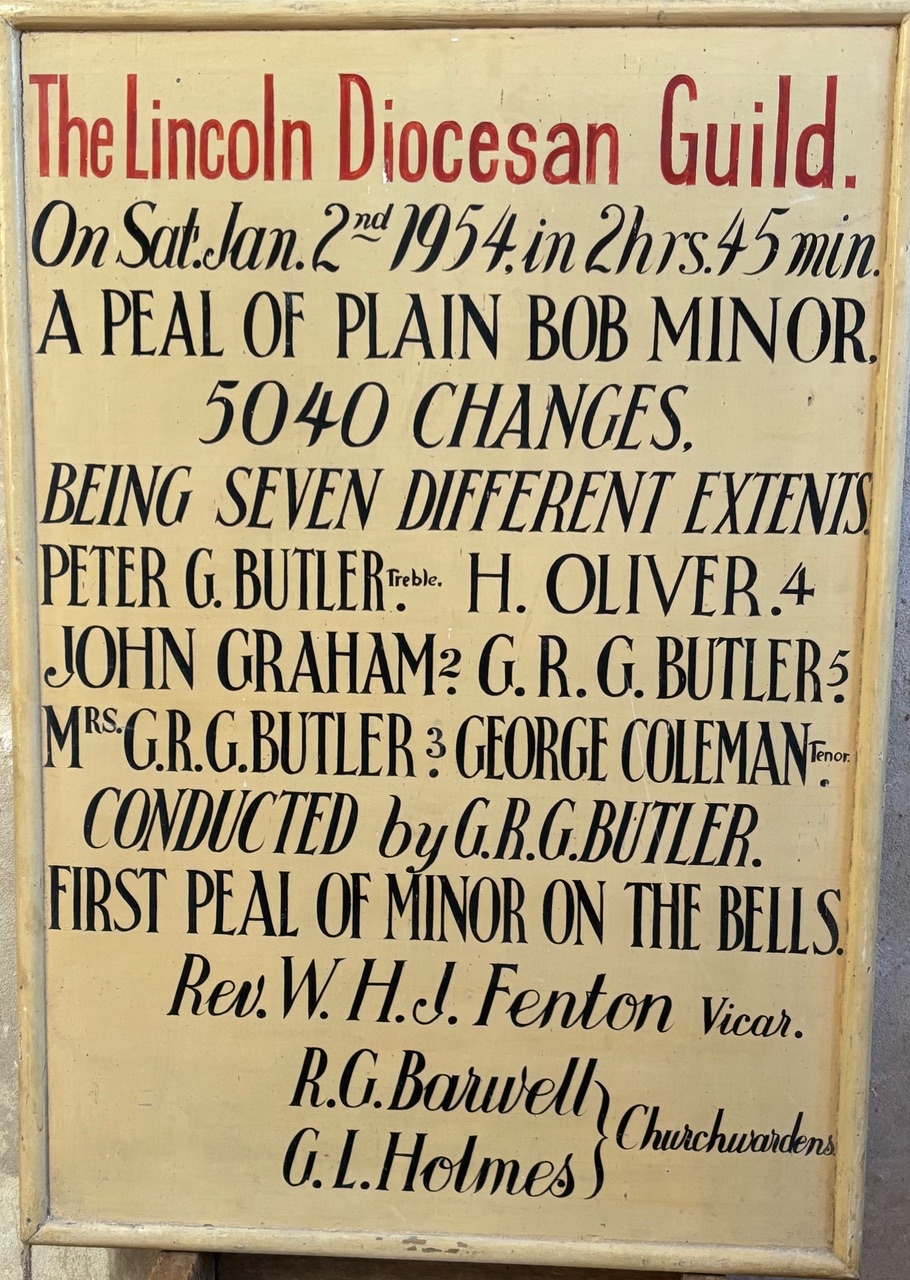 The Lincoln Diocesan Guild.
On Sat. Jan. 2nd 1954, in 2hrs. 45 min.
A PEAL OF PLAIN BOB MINOR,
5040 CHANGES,
BEING SEVEN DIFFERENT EXTENTS.
PETER G. BUTLER. Treble. H. OLIVER. 4
JOHN GRAHAM. 2 G. R. G. BUTLER. 5
MRS. G.R.G. BUTLER. 3 GEORGE COLEMAN. Tenor.
CONDUCTED by G.R.G. BUTLER.
FIRST PEAL OF MINOR ON THE BELLS.
Rev. W. H. J. Fenton Vicar.
R.G. Barwell
G. L. Holmes } Churchwardens